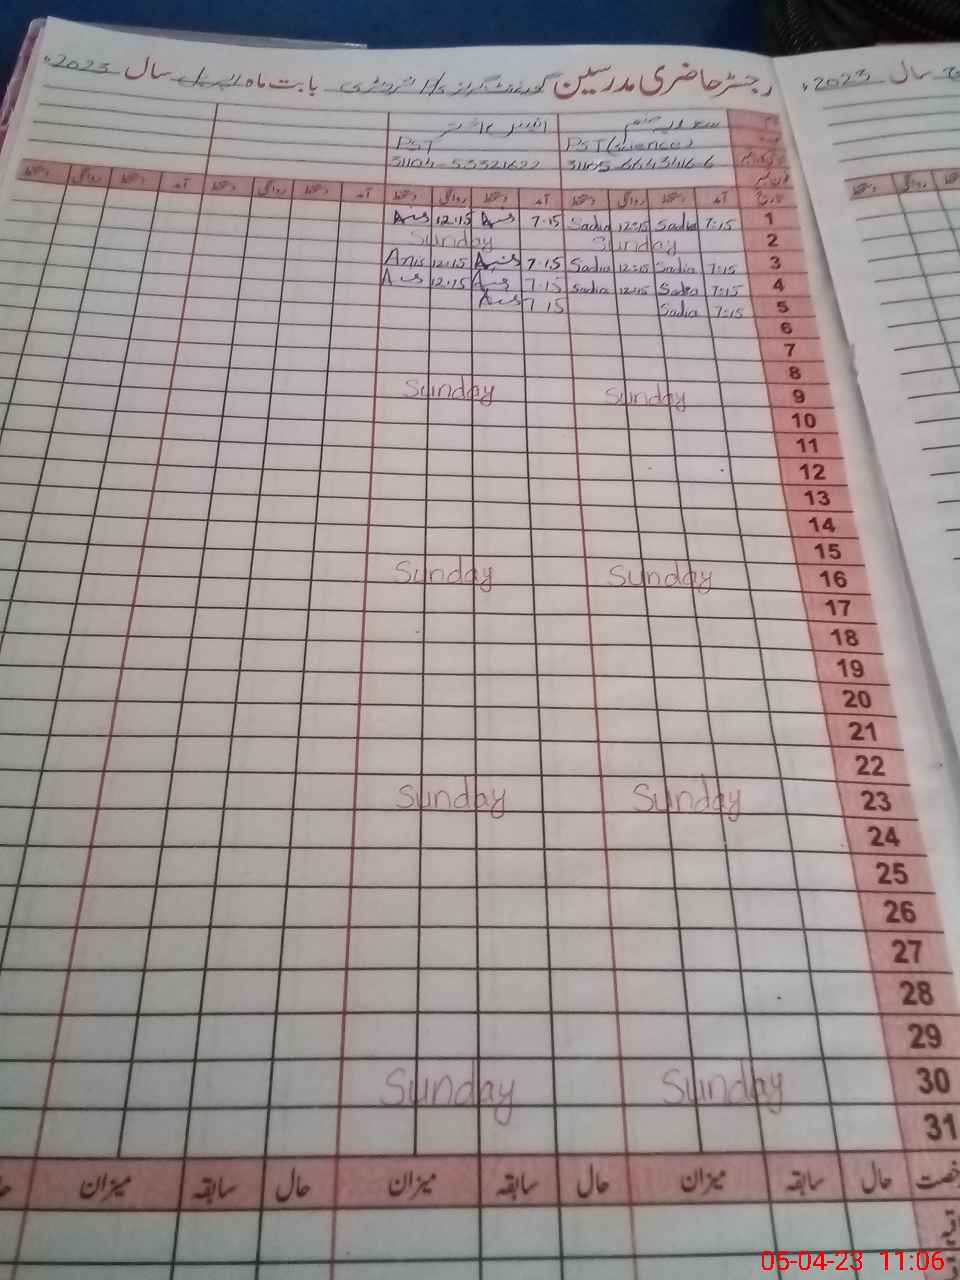 رجسٹر حاضری مدرسین گورنمنٹ گرلز بابت ماہ اپریل سال 2023ء
سال 2023ء
PST PST (Science)
آمد دستخط روانگی دستخط آمد دستخط روانگی دستخط آمد دستخط روانگی دستخط آمد دستخط روانگی دستخط
1 7:15 Sadia 12:15 Sadia 7:15 Anis 12:15 Anis
2 Sunday Sunday
3 7:15 Sadia 12:15 Sadia 7:15 Anis 12:15 Anis
4 7:15 Sadia 12:15 Sadia 7:15 Anis 12:15 Anis
5 7:15 Sadia 7:15 Anis
6
7
8
9 Sunday Sunday
10
11
12
13
14
15
16 Sunday Sunday
17
18
19
20
21
22
23 Sunday Sunday
24
25
26
27
28
29
30 Sunday Sunday
31
حال سابقہ میزان حال سابقہ میزان حال سابقہ میزان
05-04-23 11:06